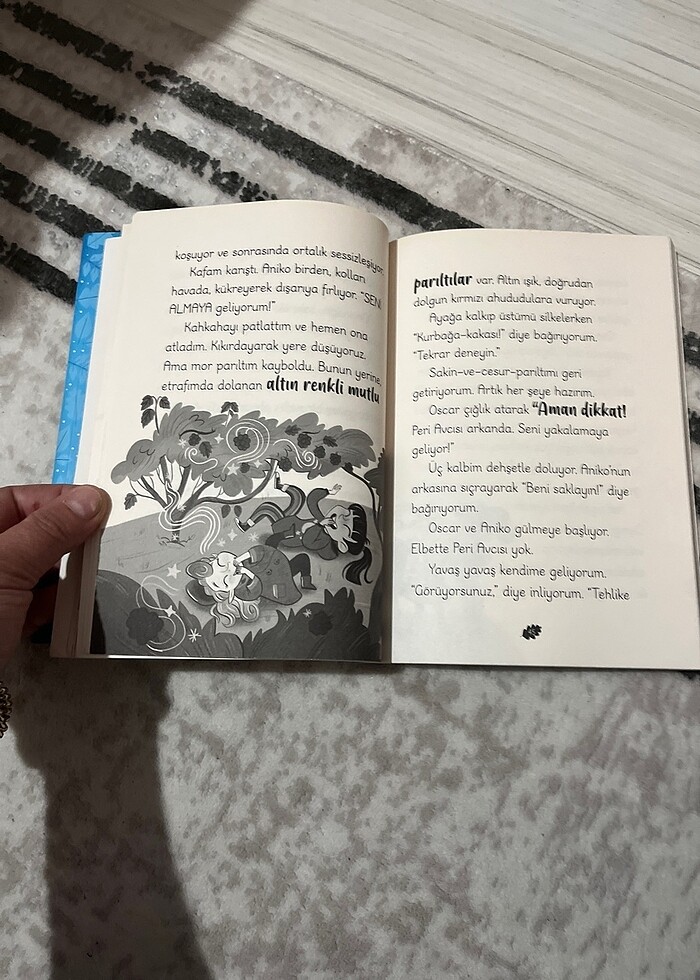 koşuyor ve sonrasında ortalık sessizleşiyor.
Kafam karıştı. Aniko birden, kolları
havada, kükreyerek dışarıya fırlıyor. “SENİ
ALMAYA geliyorum!”
Kahkahayı patlattım ve hemen ona
atladım. Kıkırdayarak yere düşüyoruz.
Ama mor parıltım kayboldu. Bunun yerine,
etrafımda dolanan altın renkli mutlu
parıltılar var. Altın ışık, doğrudan
dolgun kırmızı ahududulara vuruyor.
Ayağa kalkıp üstümü silkelerken
“Kurbağa-kakası!” diye bağırıyorum.
“Tekrar deneyin.”
Sakin-ve-cesur-parıltımı geri
getiriyorum. Artık her şeye hazırım.
Oscar çığlık atarak “Aman dikkat!
Peri Avcısı arkanda. Seni yakalamaya
geliyor!”
Üç kalbim dehşetle doluyor. Aniko’nun
arkasına sıçrayarak “Beni saklayın!” diye
bağırıyorum.
Oscar ve Aniko gülmeye başlıyor.
Elbette Peri Avcısı yok.
Yavaş yavaş kendime geliyorum.
“Görüyorsunuz,” diye inliyorum. “Tehlike